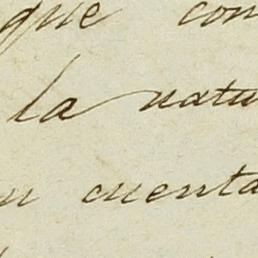 que con
la natu
n cuenta